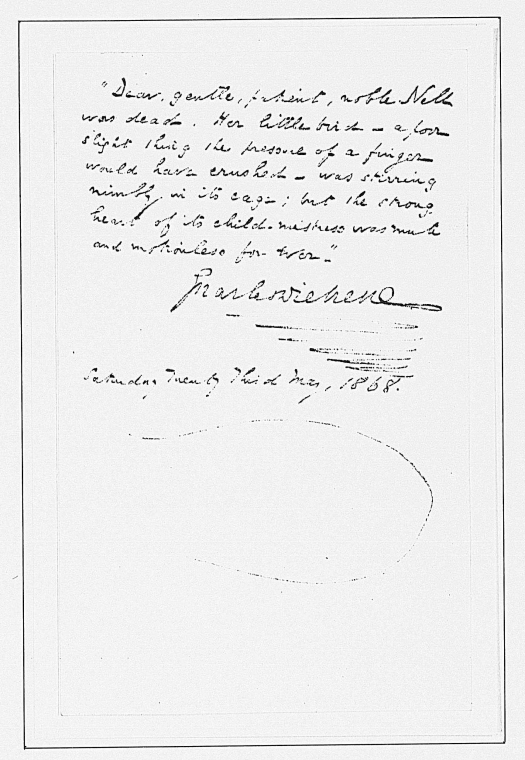 "Dear, gentle, patient, noble Nell
was dead. Her little bird – a poor
slight thing the pressure of a finger
would have crushed – was stirring
nimbly in its cage; but the strong
heart of its child-mistress was mute
and motionless for ever."
Charles Dickens
Saturday Twenty Third May, 1868.